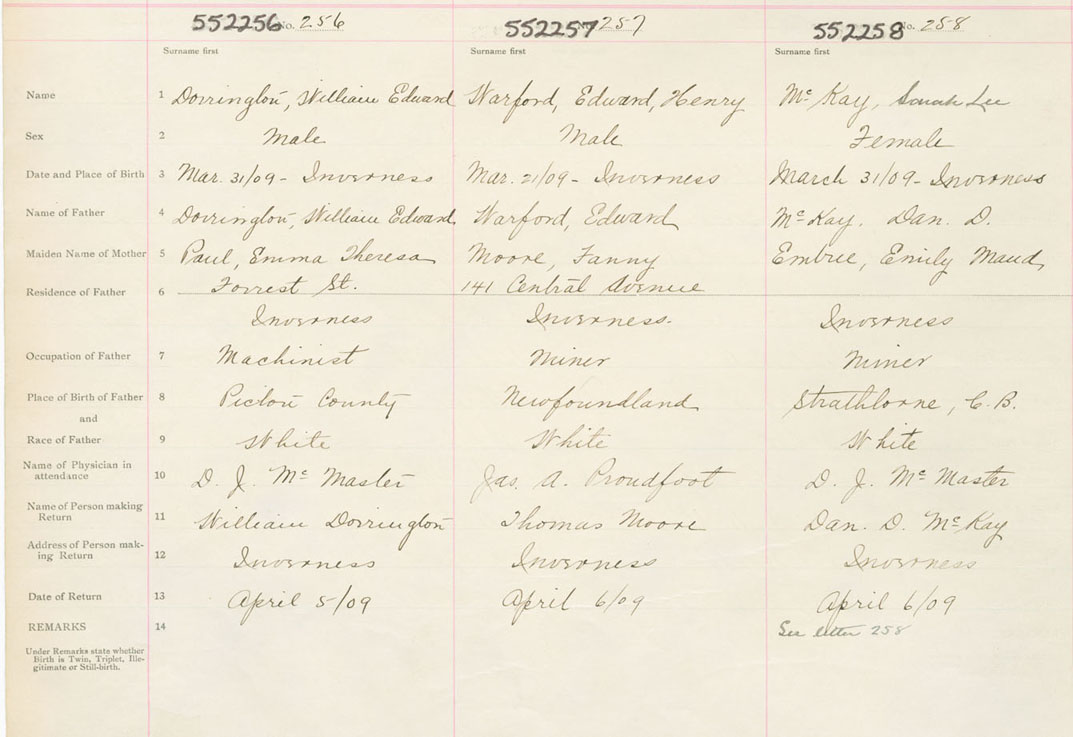 552256 No. 256 552257 No. 257 552258 No. 258
Surname first Surname first Surname first
Name 1 Dorrington, William Edward Warford, Edward, Henry McKay, Sarah Lee
Sex 2 Male Male Female
Date and Place of Birth 3 Mar. 31/09 - Inverness Mar. 21/09 - Inverness March 31/09 - Inverness
Name of Father 4 Dorrington, William Edward Warford, Edward McKay, Dan. D.
Maiden Name of Mother 5 Paul, Emma Theresa Moore, Fanny Embree, Emily Maud
Residence of Father 6 Forrest St. 141 Central Avenue
Inverness Inverness. Inverness
Occupation of Father 7 Machinist Miner Miner
Place of Birth of Father 8 Pictou County Newfoundland Strathlorne, C.B.
and
Race of Father 9 White White White
Name of Physician in
attendance 10 D. J. McMaster Jas. A. Proudfoot D. J. McMaster
Name of Person making
Return 11 William Dorrington Thomas Moore Dan. D. McKay
Address of Person mak-
ing Return 12 Inverness Inverness Inverness
Date of Return 13 April 5/09 April 6/09 April 6/09
REMARKS 14 See letter 258
Under Remarks state whether
Birth is Twin, Triplet, Ille-
gitimate or Still-birth.